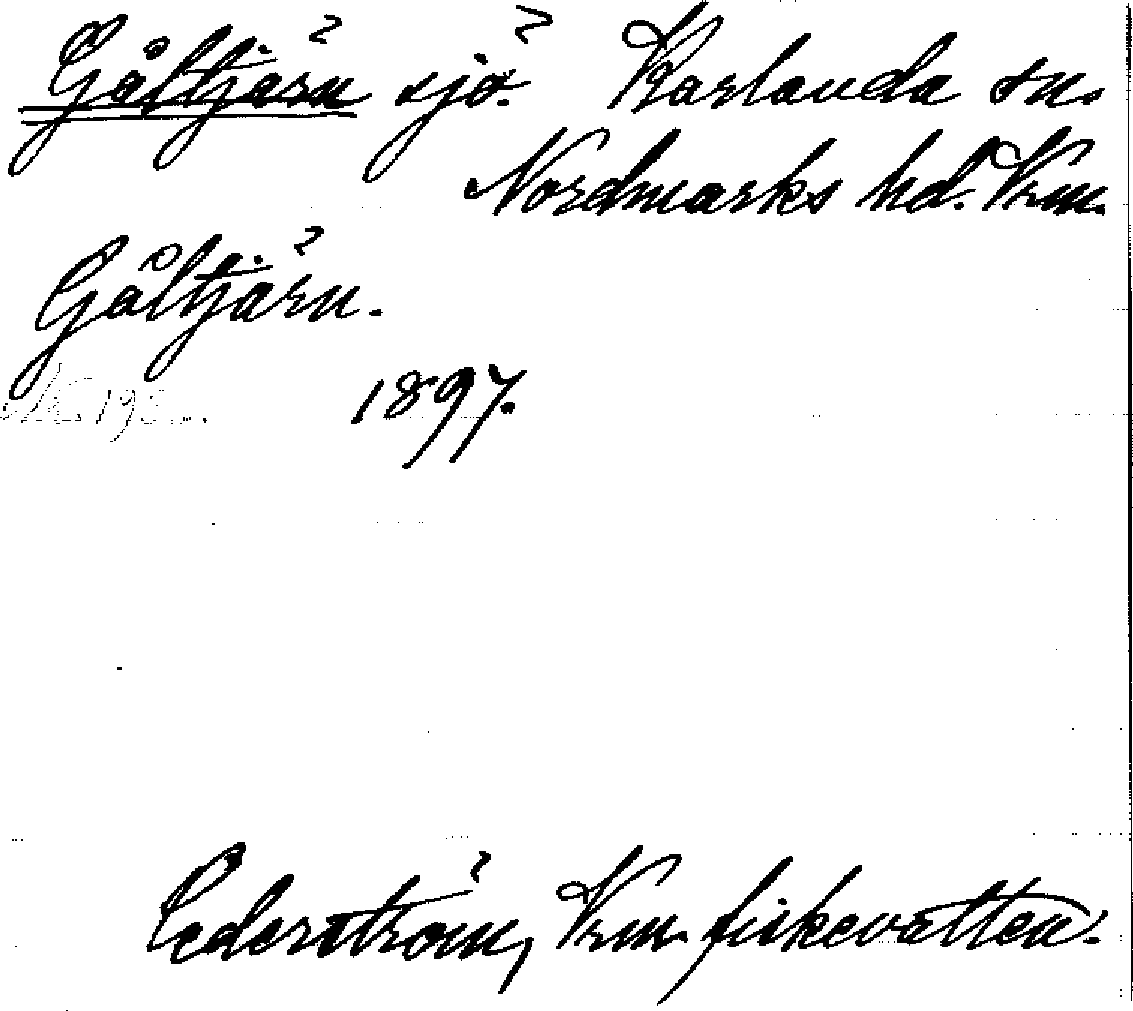 Gåltjärn sjö. Karlanda sn.
Nordmarks hd. Vrm.
Gåltjärn.
1897.
Cederström, Vrm. fiskevatten.